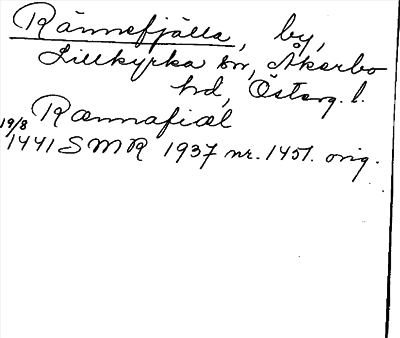 Rännefjälla, by,
Lillkyrka sn, Åkerbo
hd, Österg. l.
Rænnafiæl
19/8
1441 SMR 1937 nr. 1451. orig.